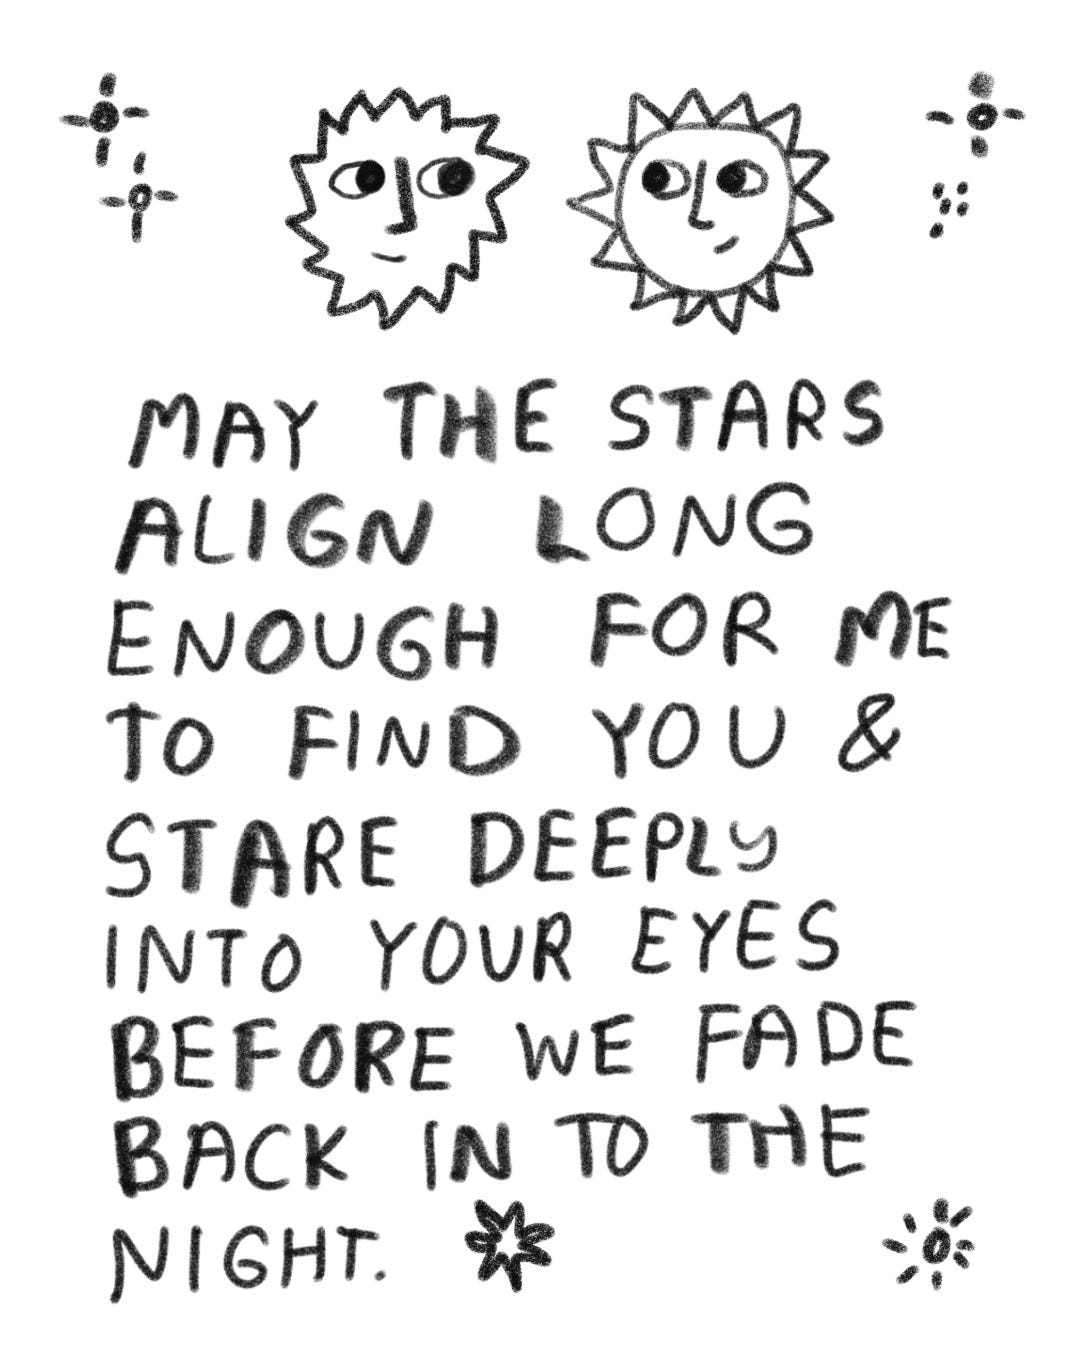 MAY THE STARS
ALIGN LONG
ENOUGH FOR ME
TO FIND YOU &
STARE DEEPLY
INTO YOUR EYES
BEFORE WE FADE
BACK IN TO THE
NIGHT.